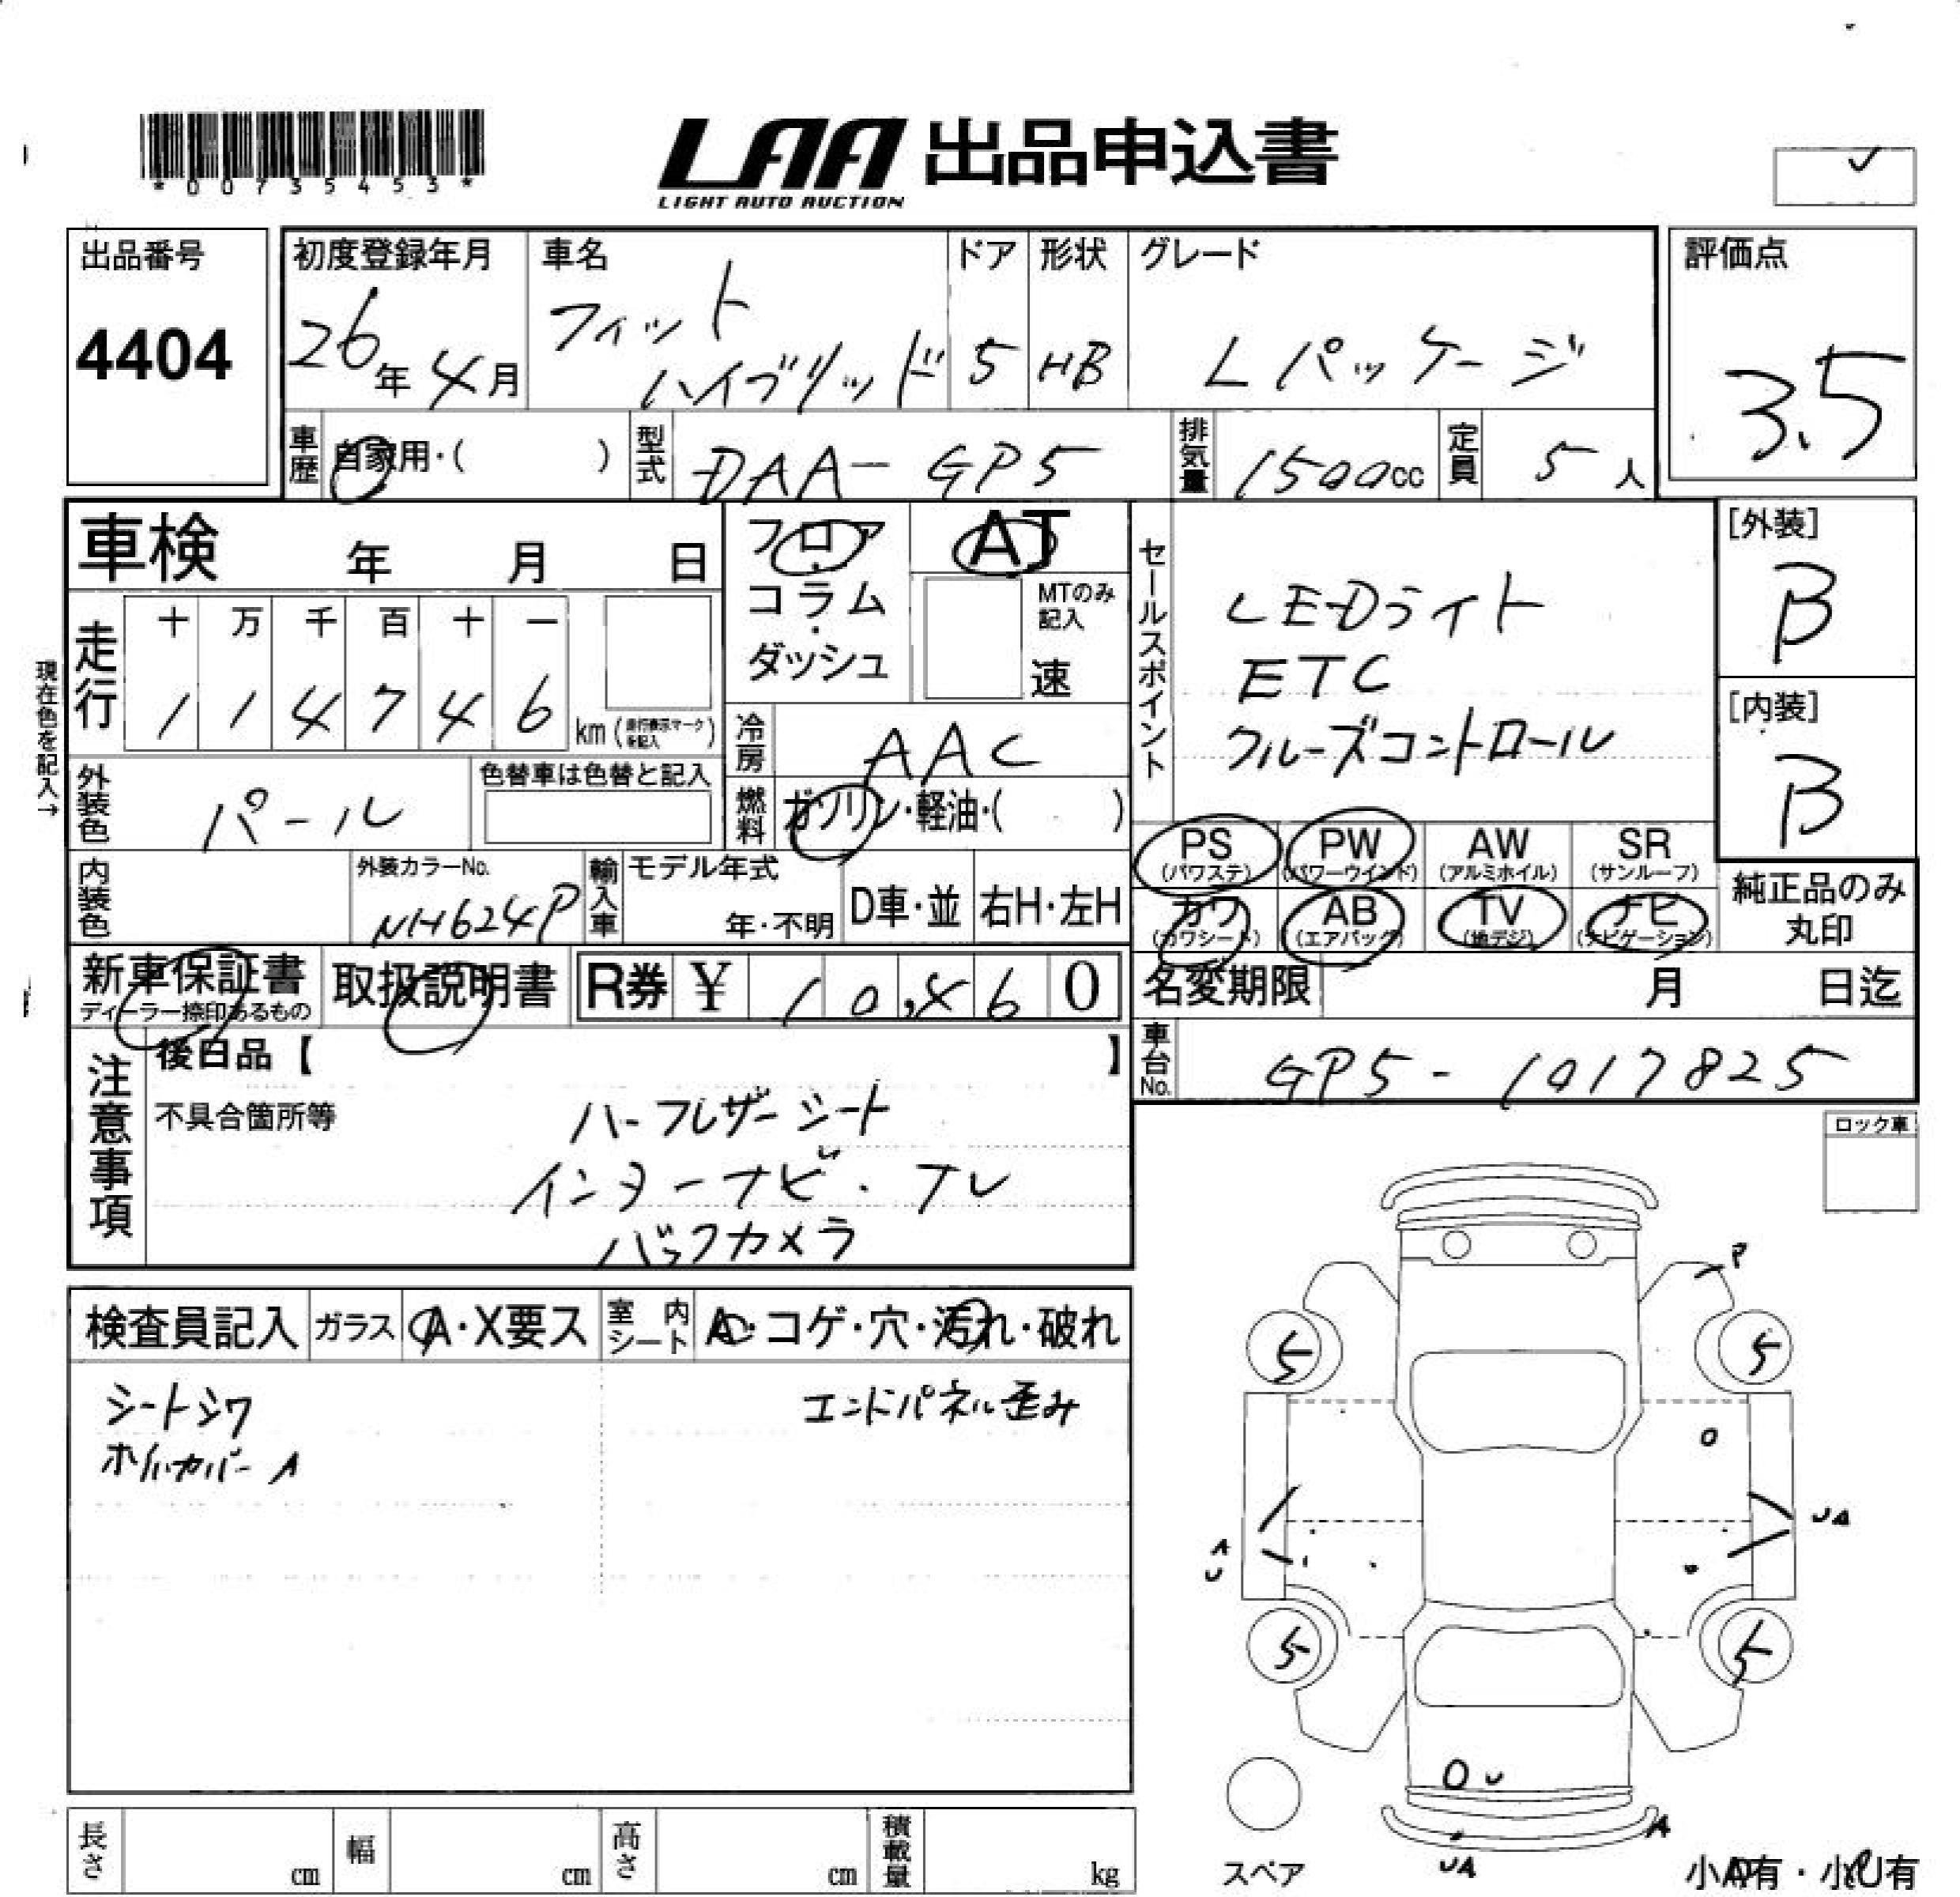 *00735453*
LAA 出品申込書
LIGHT AUTO AUCTION
出品番号
4404
初度登録年月
26年 4月
車名
フィット
ハイブリッド
ドア
5
形状
HB
グレード
Lパッケージ
評価点
3.5
車歴 自家用・( )
型式 DAA-GP5
排気量 1500cc
定員 5人
車検 年 月 日
フロア・コラム・ダッシュ
AT
MTのみ記入
速
セールスポイント
LEDライト
ETC
クルーズコントロール
[外装]
B
[内装]
B
現在色を記入→
走行
十 万 千 百 十 一
1 1 4 7 4 6 km
冷房 AAC
外装色 パール
色替車は色替と記入
燃料 ガソリン・軽油・( )
PS (パワステ)
PW (パワーウインド)
AW (アルミホイル)
SR (サンルーフ)
カワ (カワシート)
AB (エアバッグ)
TV (地デジ)
ナビ (ナビゲーション)
純正品のみ
丸印
内装色
外装カラーNo.
NH624P
輸入車
モデル年式
年・不明
D車・並
右H・左H
新車保証書
ディーラー捺印あるもの
取扱説明書
R券 ¥ 10,460
名変期限 月 日迄
車台No. GP5-1017825
注意事項
後日品【 】
不具合箇所等
ハーフレザーシート
インターナビ・テレ
バックカメラ
ロック車
検査員記入
ガラス A・X要ス
室内シート A・コゲ・穴・汚れ・破れ
シートシワ
ホイルカバーA
エンドパネル歪み
P
5 5
UA
A
U
5 5
U
A
UA
スペア
小A有・小U有
長さ cm
幅 cm
高さ cm
積載量 kg